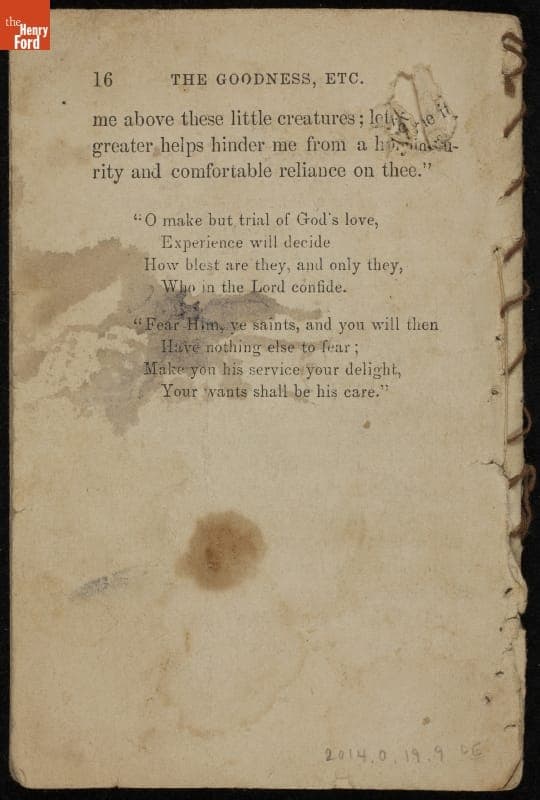 the
Henry
Ford
16 THE GOODNESS, ETC.
me above these little creatures; let
greater helps hinder me from a
rity and comfortable reliance on thee."
"O make but trial of God's love,
Experience will decide
How blest are they, and only they,
Who in the Lord confide.
"Fear Him, ye saints, and you will then
Have nothing else to fear;
Make you his service your delight,
Your wants shall be his care."
2014.0.19.9